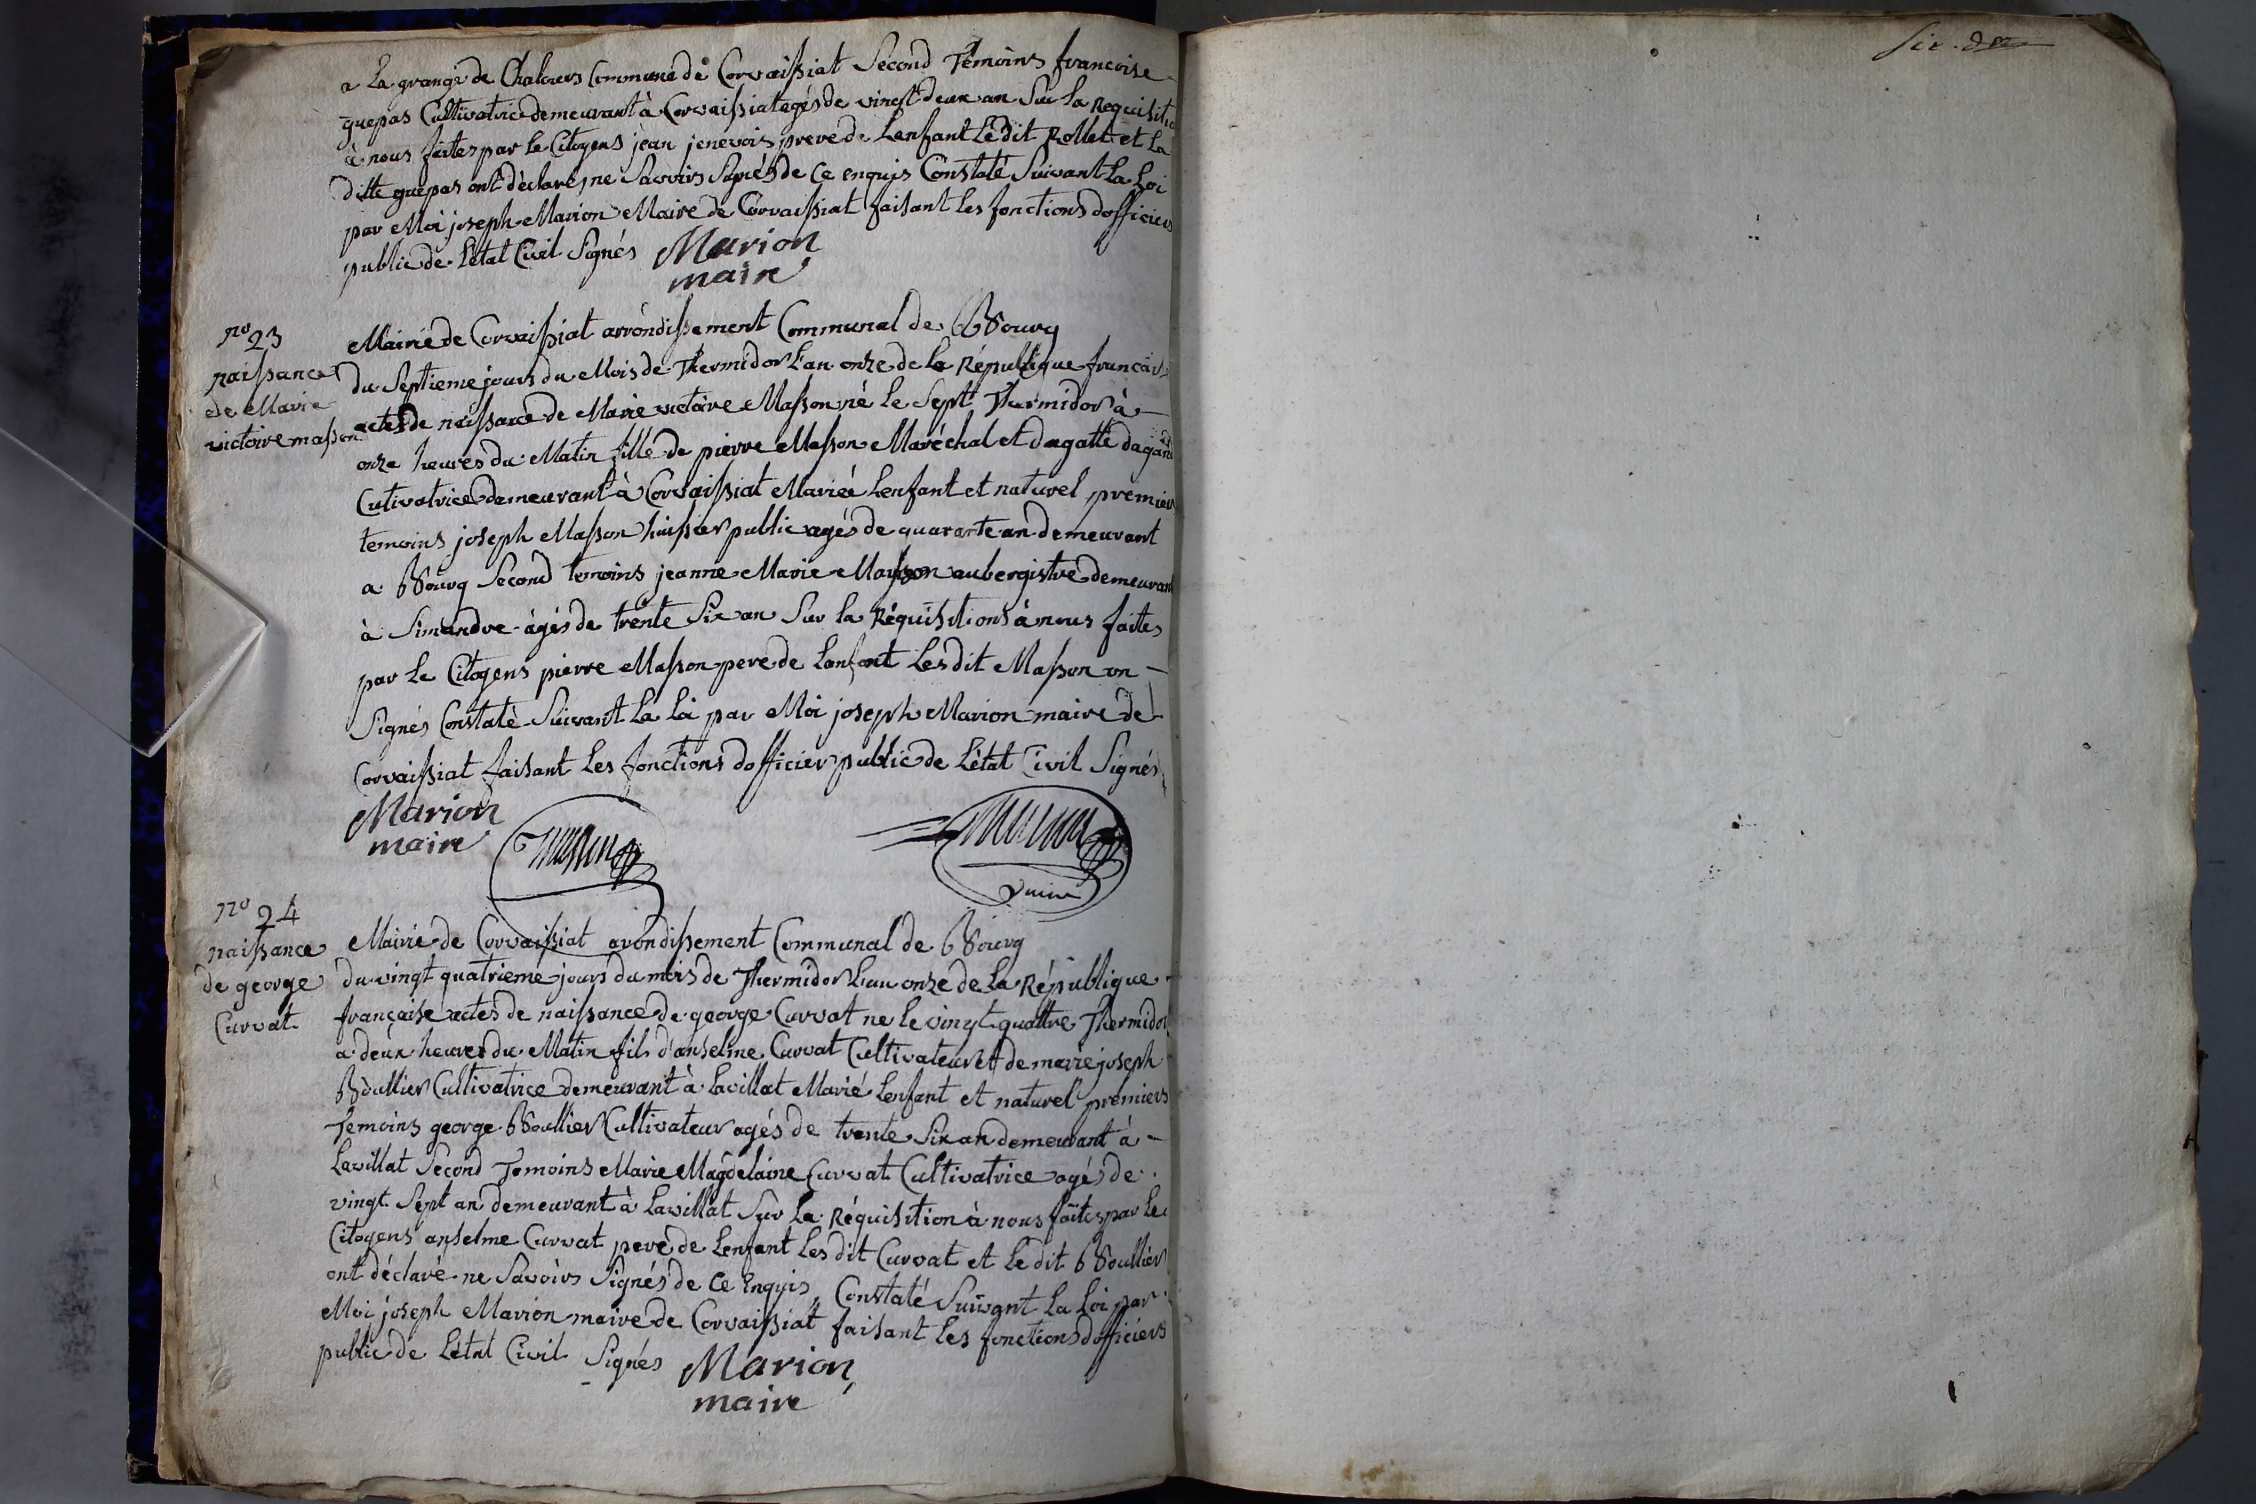 a La grange de Chalours Commune de Corvaissiat Second Temoins francoise
guepas Cultivatrice demeurant à Corvaissiat agés de vingt deux an Sur la Requisition
à nous faites par le Citoyens jean jenevois pere de Lenfant Le dit Rollet et La
ditte guepas ont dèclaré, ne Savoirs Signés de Ce enquis Constaté Suivant La Loi
par Moi joseph Marion Maire de Corvaissiat faisant Les fonctions dofficiers
public de L'état Civil Signés Marion
maire
no 23
naissance
de Marie
victoire masson
Mairie de Corvaissiat arrondissement Communal de Bourg
du Septieme jours du Mois de Thermidor L'an onze de la République français
actes de naissance de Marie victoire Masson né le Sept Thermidor à
onze heures du Matin fille de pierre Masson Maréchal et dagatte dagand
Cutivatrice demeurant à Corvaissiat Mariée Lenfant et naturel premier
temoins joseph Masson huissier public agés de quarante an demeurant
a Bourg Second temoins jeanne Marie Masson aubergistre demeurant
à Simandre agés de trente Six an Sur la Réquisitions à nous faites
par Le Citoyens pierre Masson pere de Lenfant Les dit Masson on
Signés Constatè Suivant La Loi par Moi joseph Marion maire de
Corvaissiat faisant Les fonctions dofficier public de L'état Civil Signés
Marion
maire
masson
no 24
naissance
de george
Curvat
Mairie de Corvaissiat arondissement Communal de Bourg
du vingt quatrieme jours du mois de Thermidor L'an onze de La République
française actes de naissance de george Curvat ne le vingt quattre Thermidor
a deux heures du Matin fils d'anselme Curvat Cultivateur et de marie joseph
Boullier Cultivatrice demeurant à Lavillat Marié Lenfant et naturel premiers
Temoins george Boullier Cultivateur agés de trente Six an demeurant à
Lavillat Second Temoins Marie Magdelaine Curvat Cultivatrice agés de
vingt Sept an demeurant à Lavillat Sur La Réquisition à nous faites par Le
Citoyens anselme Curvat pere de Lenfant Les dit Curvat et Le dit Boullier
ont déclaré ne Savoirs Signés de Ce Enquis, Constaté Suivant La Loi par
Moi joseph Marion maire de Corvaissiat faisant Les fonctions dofficiers
public de L'état Civil Signés Marion
maire